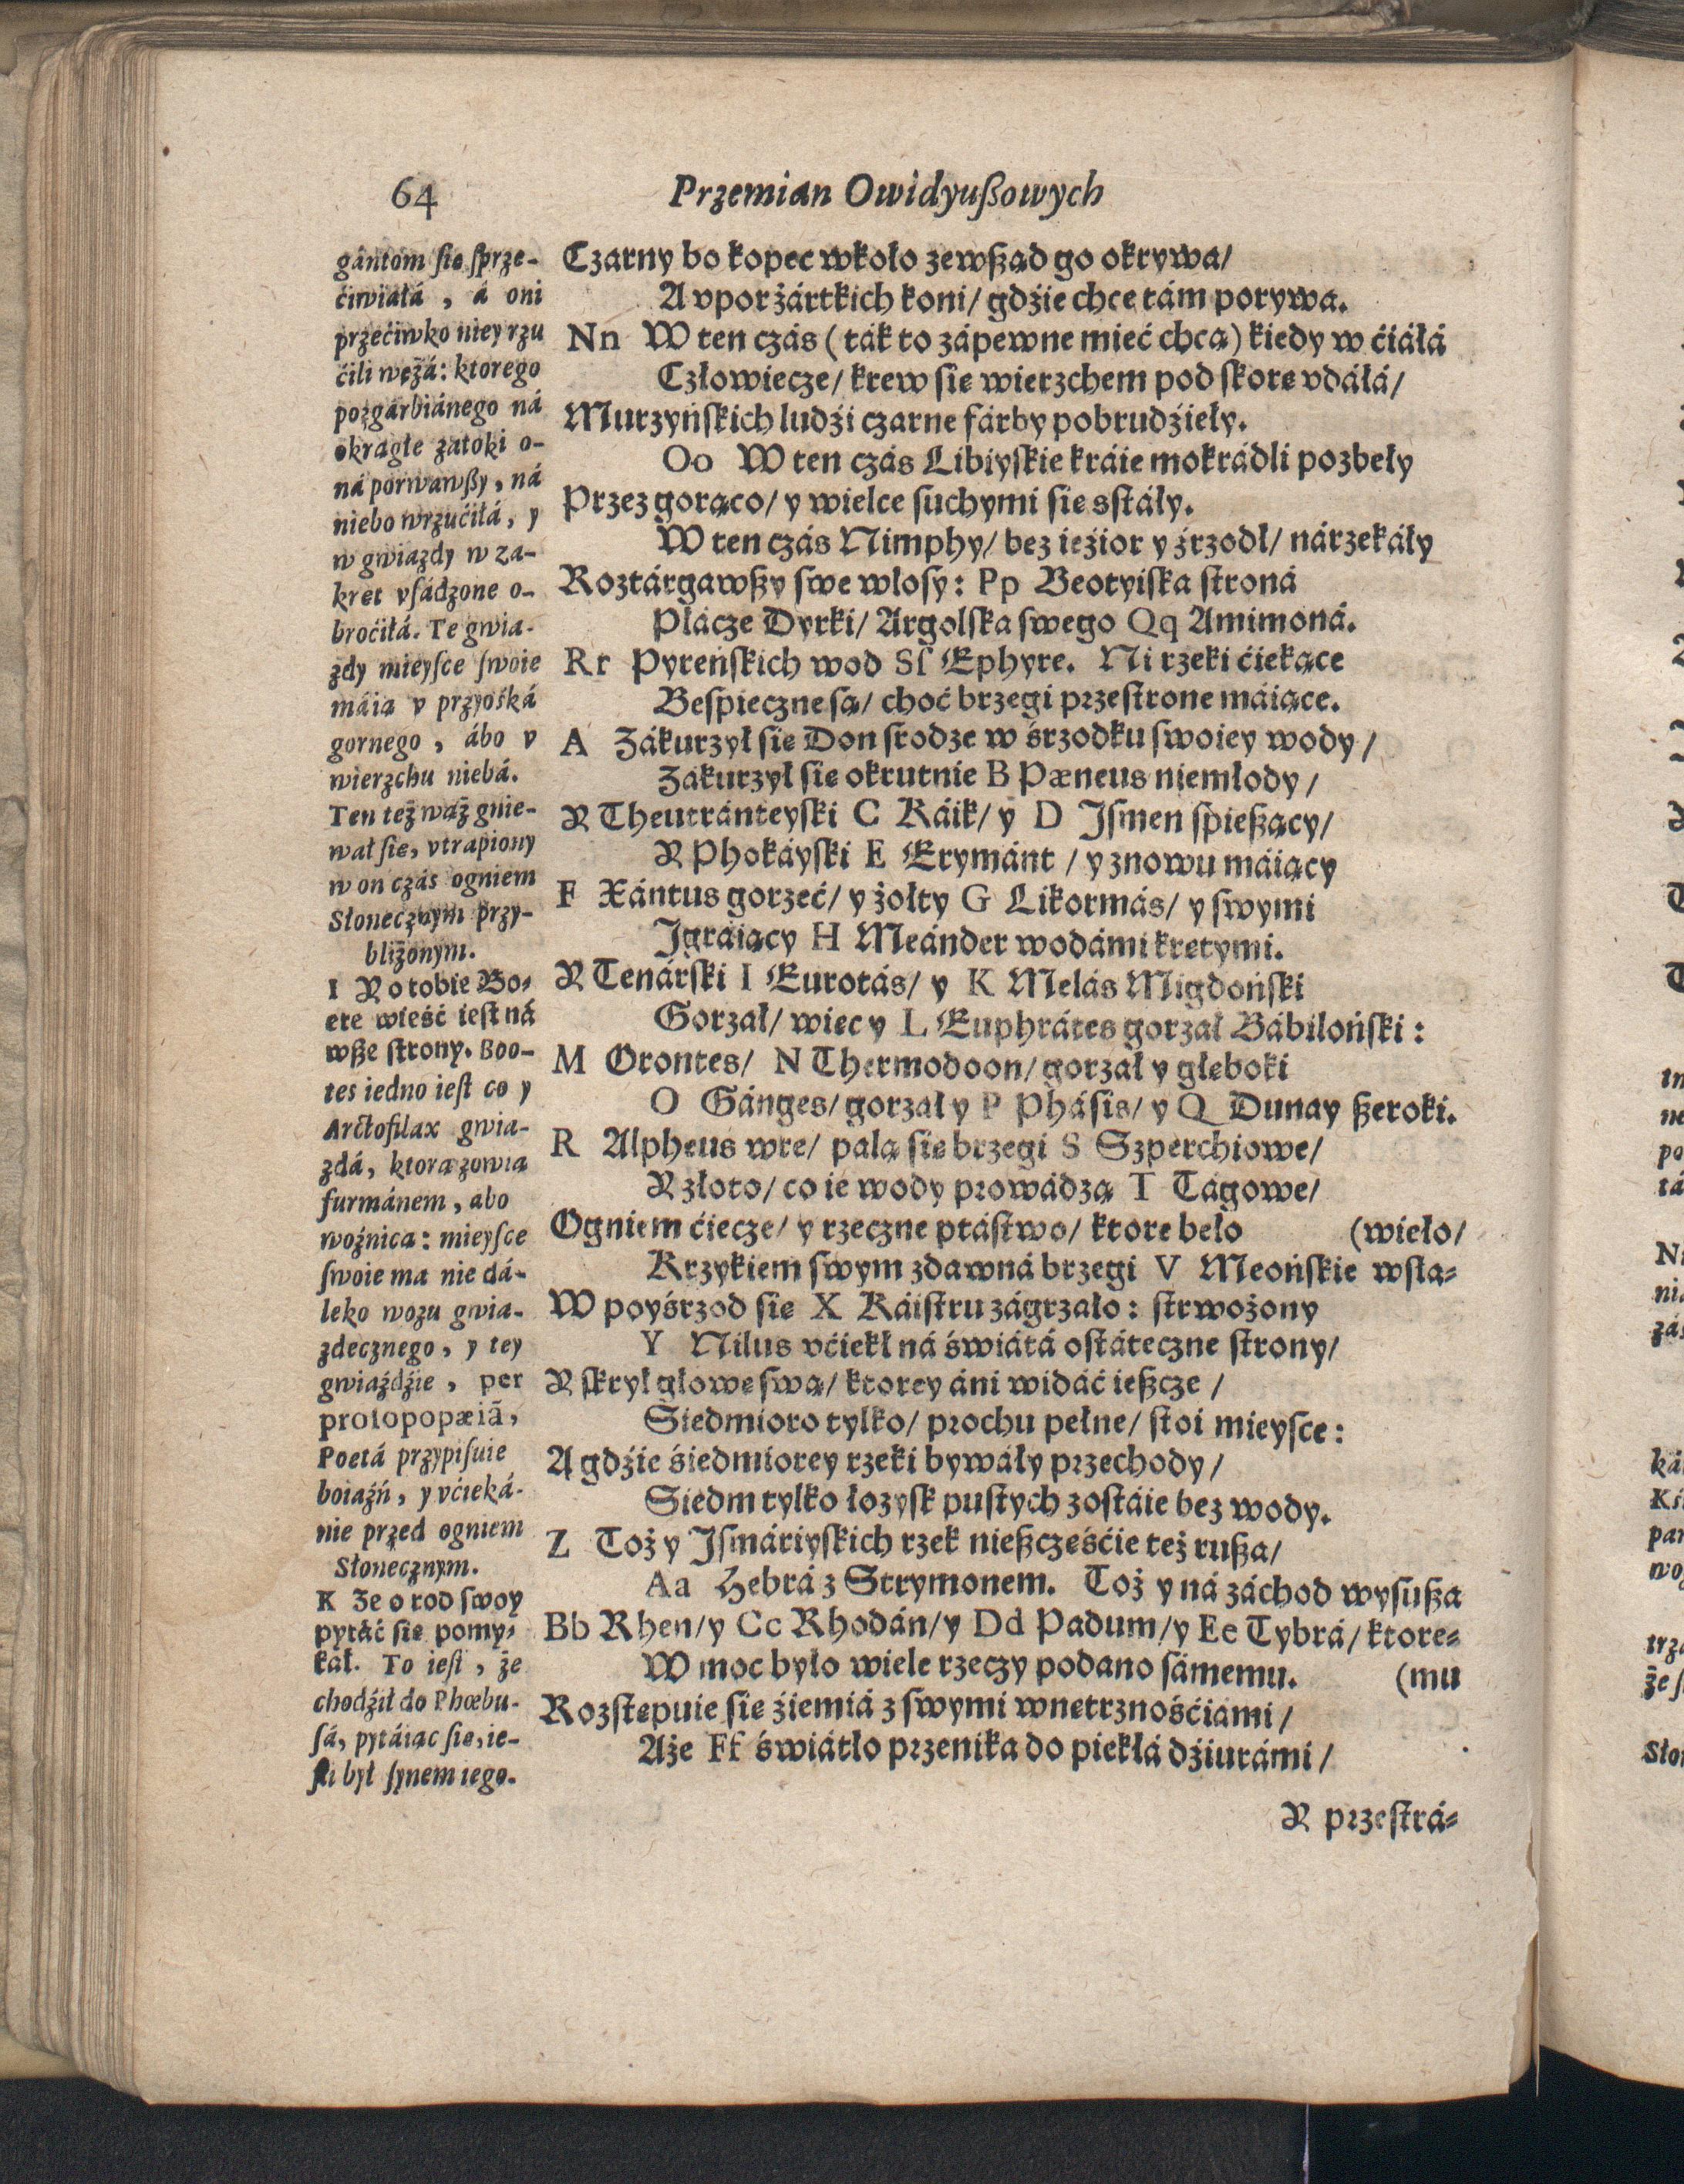 64
Przemian Owidyuſzowych
gántom ſie ſprze-
ćiwiáłá, á oni
przećiwko niey rzu
ćili wężá: ktorego
pozgárbiánego ná
okrągłe zatoki o-
ná porwawſzy, ná
niebo wrzućiłá, y
w gwiazdy w za-
kret vſádzone o-
broćiłá. Te gwia-
zdy mieyſce ſwoie
máią v przyośká
gornego, ábo v
wierzchu niebá.
Ten też wąż gnie-
wał ſie, vtrapiony
w on czás ogniem
Słonecznym przy-
bliżonym.
I Y o tobie Bo-
ete wieść ieſt ná
wſze ſtrony. Boo-
tes iedno ieſt co y
Arctofilax gwia-
zdá, ktorą zowią
furmánem, abo
woźnica: mieyſce
ſwoie ma nie dá-
leko wozu gwia-
zdecznego, y tey
gwiaździe, per
proſopopæiã,
Poetá przypiſuie
boiaźń, y vćieká-
nie przed ogniem
Słonecznym.
K Że o rod ſwoy
pytáć ſie pomy-
kał. To ieſt, że
chodźił do Phœbu-
ſá, pytáiąc ſie, ie-
ſli był ſynem iego.
Czarny bo kopec wkoło zewſząd go okrywa/
A vpor żártkich koni/ gdźie chce tám porywa.
Nn W ten czás (ták to zápewne mieć chcą) kiedy w ćiáłá
Człowiecze/ krew ſie wierzchem pod ſkore vdáłá/
Murzyńſkich ludźi czarne fárby pobrudźieły.
Oo W ten czás Libiyſkie kráie mokrádli pozbeły
Przez gorąco/ y wielce ſuchymi ſie sſtáły.
W ten czás Nimphy/ bez ieźior y źrzodł/ nárzekáły
Roztárgawſzy ſwe włoſy: Pp Beotyiſka ſtroná
Płácze Dyrki/ Argolſka ſwego Qq Amimoná.
Rr Pyreńſkich wod Sſ Ephyre. Ni rzeki ćiekące
Beſpieczne ſą/ choć brzegi przeſtrone máiące.
A Zákurzył ſie Don ſrodze w śrzodku ſwoiey wody/
Zákurzył ſie okrutnie B Pæneus niemłody/
Y Theutránteyſki C Káik/ y D Iſmen ſpieſzący/
Y Phokáyſki E Erymánt / y znowu máiący
F Xántus gorzeć/ y żołty G Likormás/ y ſwymi
Igráiący H Meánder wodámi kretymi.
Y Tenárſki I Eurotás/ y K Melás Migdońſki
Gorzał/ wiec y L Euphrátes gorzał Bábilońſki:
M Orontes/ N Thermodoon/ gorzał y głeboki
O Gánges/ gorzał y P Phásis/ y Q Dunay ſzeroki.
R Alpheus wre/ palą ſie brzegi S Szperchiowe/
Y złoto/ co ie wody prowádzą T Tágowe/
Ogniem ćiecze/ y rzeczne ptáſtwo/ ktore beło (wieło/
Krzykiem ſwym zdawná brzegi V Meońſkie wſła-
W poyśrzod ſie X Káiſtru zágrzało: ſtrwożony
Y Nilus vćiekł ná świátá oſtáteczne ſtrony/
Y ſkrył głowe ſwą/ ktorey áni widáć ieſzcze /
Siedmioro tylko/ prochu pełne/ ſtoi mieyſce:
A gdźie śiedmiorey rzeki bywáły przechody/
Siedm tylko łozyſk puſtych zoſtáie bez wody.
Z Toż y Iſmáriyſkich rzek nieſzcześćie też ruſza/
Aa Hebrá z Strymonem. Toż y ná záchod wyſuſza
Bb Rhen/ y Cc Rhodán/ y Dd Padum/ y Ee Tybrá/ ktore-
W moc było wiele rzeczy podano ſámemu. (mu
Rozſtepuie ſie źiemiá z ſwymi wnetrznośćiami/
Aże Ff świátło przenika do piekłá dźiurámi/
Y przeſtrá-